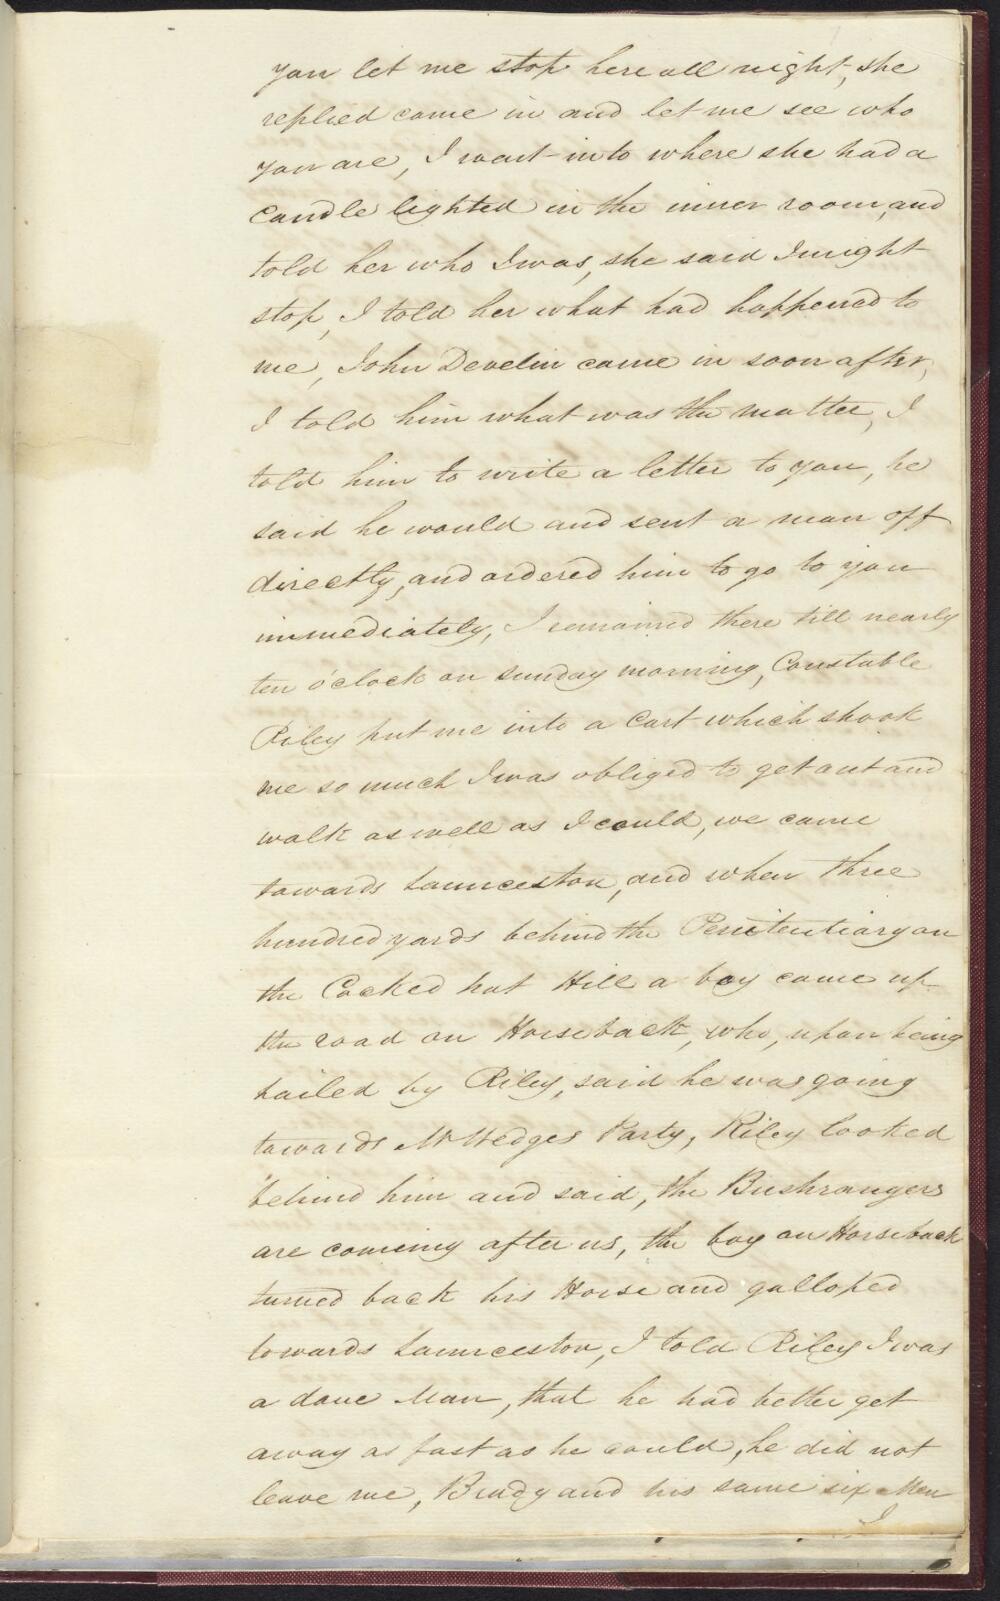 you let me stop here all night, she
replied come in and let me see who
you are, I went into where she had a
candle lighted in the inner room, and
told her who I was, she said I might
stop, I told her what had happened to
me, John Develin came in soon after,
I told him what was the matter, I
told him to write a letter to you, he
said he would and sent a man off
directly, and ordered him to go to you
immediately, I remained there till nearly
ten o'clock on Sunday morning, Constable
Riley put me into a Cart which shook
me so much I was obliged to get out and
walk as well as I could, we came
towards Launceston, and when three
hundred yards behind the Penitentiary on
the Cocked hat Hill a boy came up
the road on Horseback, who, upon being
hailed by Riley, said he was going
towards Mr Hedges Party, Riley looked
behind him and said, the Bushrangers
are coming after us, the boy on Horseback
turned back his Horse and galloped
towards Launceston, I told Riley I was
a done Man, that he had better get
away as fast as he could, he did not
leave me, Brady and his same six Men
I